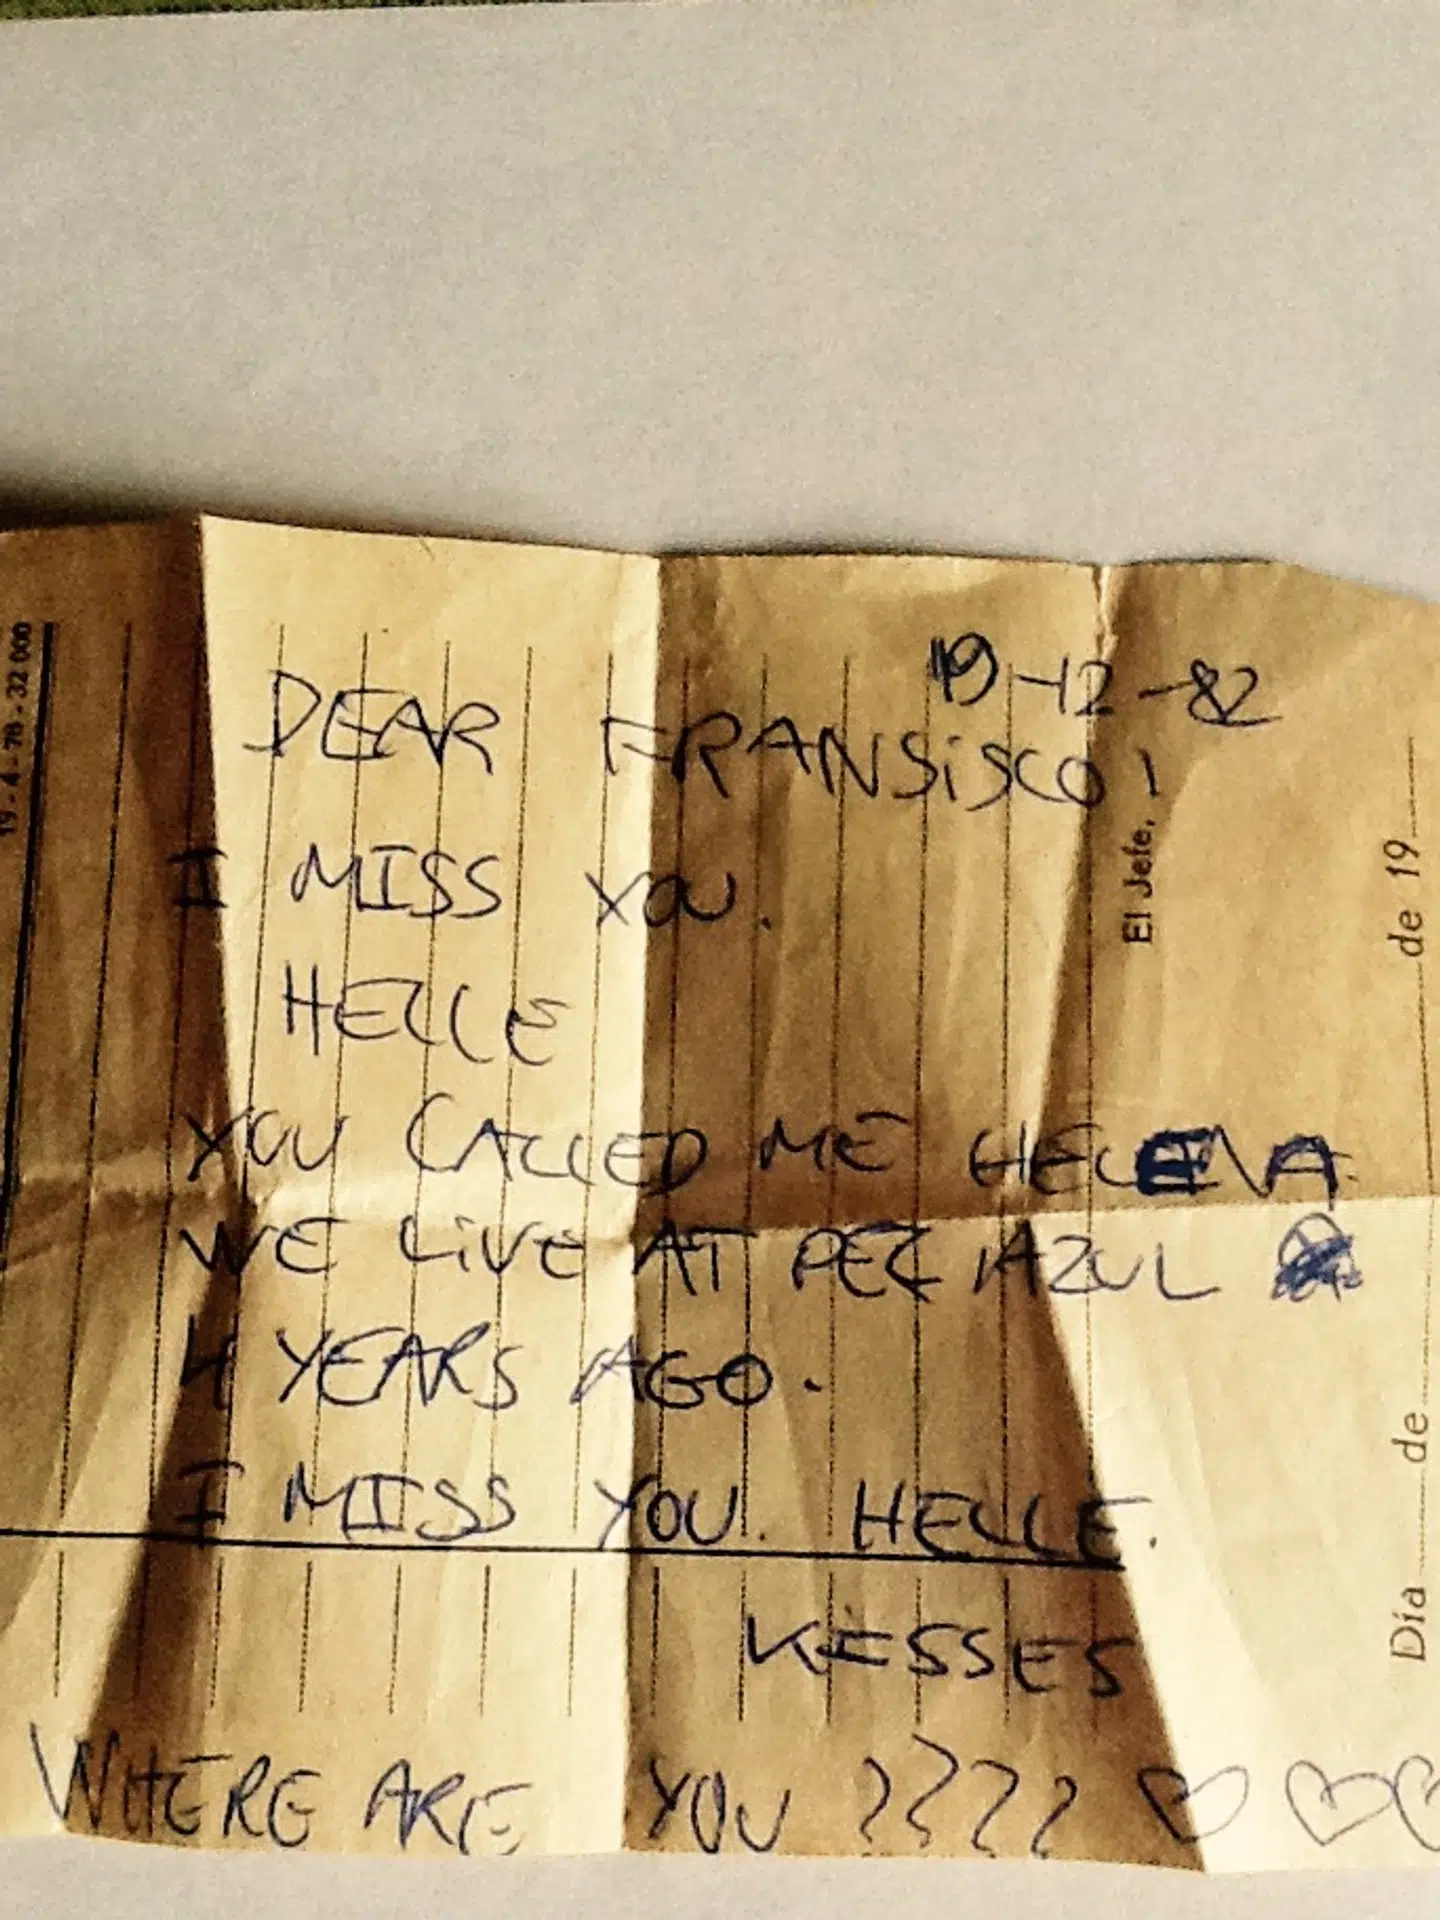 19-12-82
DEAR FRANSiSCO!
I MISS YOU.
HELLE
YOU CALLED ME HELENA.
WE LiVE AT PEZ AZUL
4 YEARS AGO.
I MISS YOU. HELLE.
KESSES
WHERE ARE YOU ???? ♡ ♡ ♡
19-4-78-32 000
El Jefe,
Día de de 19